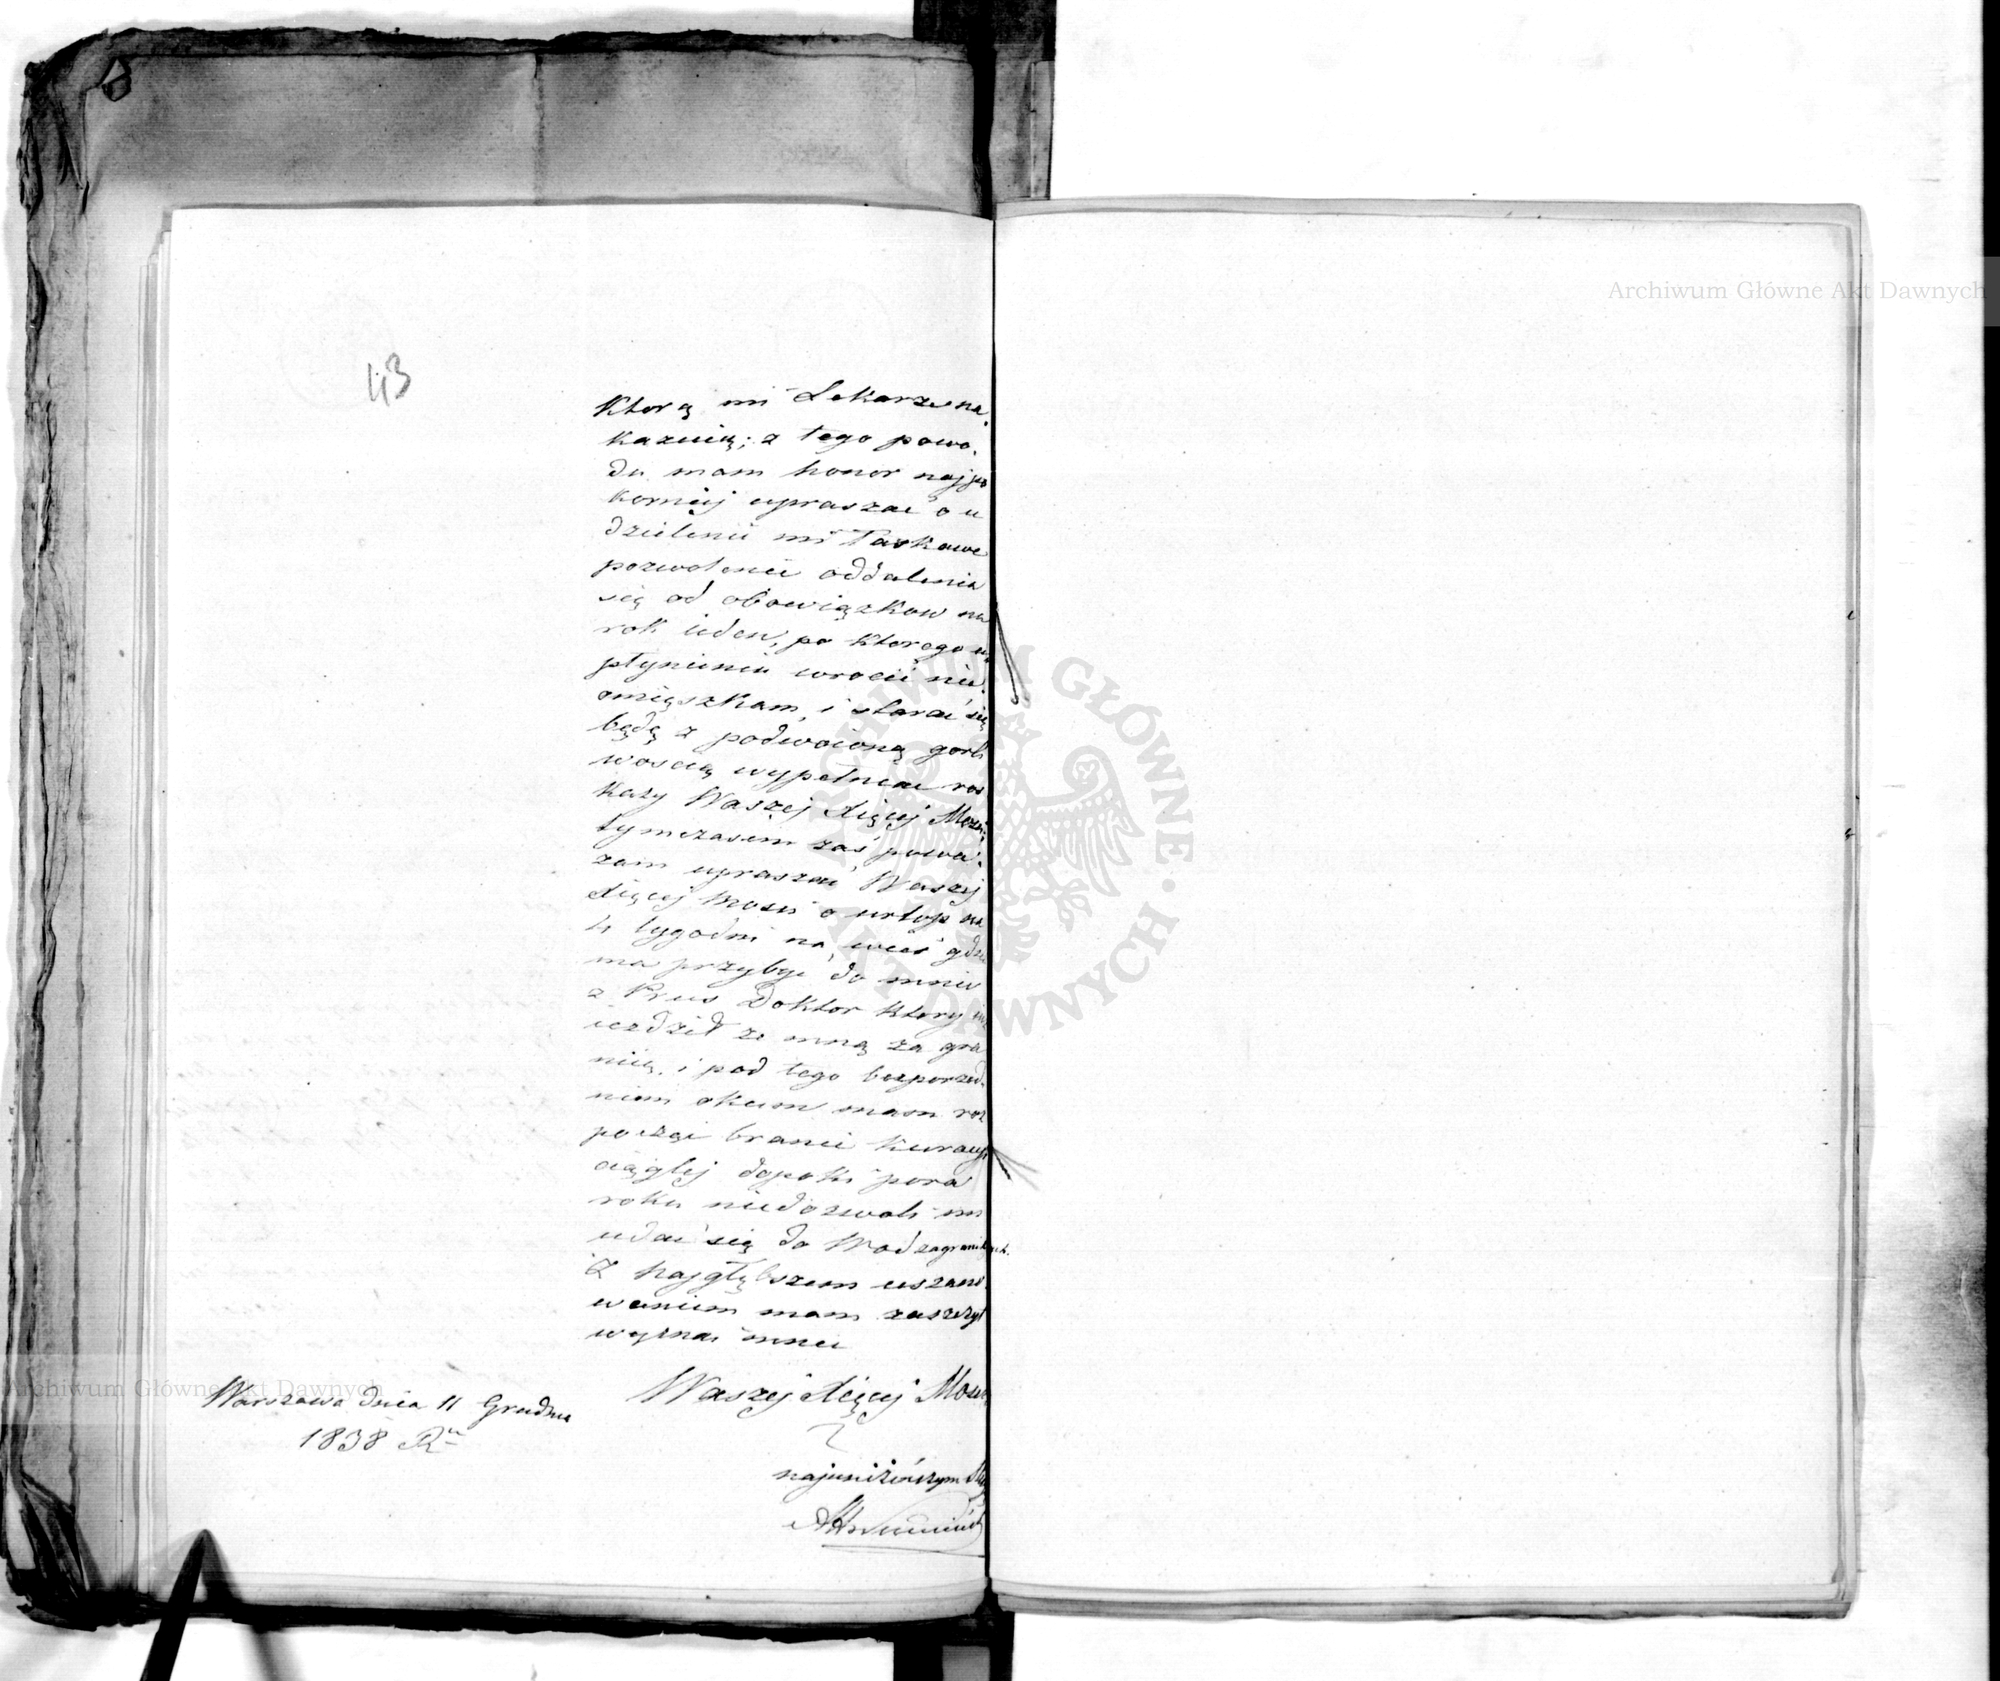 43
Ktorą mi Lekarze na
każuią; z tego powo-
du mam honor najpo
korniej upraszać o u
dzielenie mi łaskawe
pozwolenie oddalenia
się od obowiązkow na
rok ieden, po ktorego u
płynieniu wrocić nie
omięszkam, i starać się
będę z podwoioną gorli
woscią wypełniac ros
kazy Waszej Xięcej Mosci;
tymczasem zaś powa-
zam upraszać Waszej
Xięcej Mosci o urlop na
4 tygodni na wieś gdzie
ma przybyć do mnie
z Prus Doktor ktory iuż
iezdził ze mną za gra
nicę, i pod tego bezposred-
niem okiem mam roz
począć branie kuracyi
ciągłej dopoki pora
roku niedozwoli mi
udać się do Wod zagranicznych.
Z najgłębszem uszano
waniem mam zaszczyt
wyznać mnie
Waszej Xięcej Mosci
Warszawa dnia 11 Grudnia
1838 Ru
najuniżeńszym
Archiwum Główne Akt Dawnych
Archiwum Główne Akt Dawnych
ARCHIWUM GŁÓWNE AKT DAWNYCH